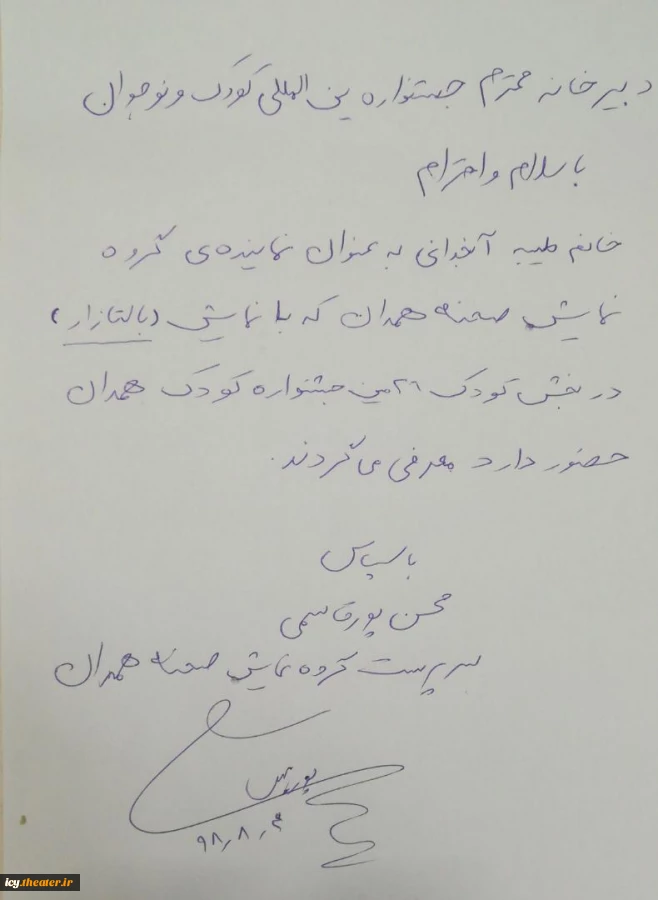 دبیرخانه محترم جشنواره بین المللی کودک و نوجوان
با سلام و احترام
خانم طیبه آنجدانی به عنوان نماینده‌ی گروه
نمایش صحنه همدان که با نمایش (بالتازار)
در بخش کودک ۲۶مین جشنواره کودک همدان
حضور دارد معرفی می گردند.
با سپاس
محسن پورقاسمی
سرپرست گروه نمایش صحنه همدان
۹۸٫۸٫۴
icy.theater.ir